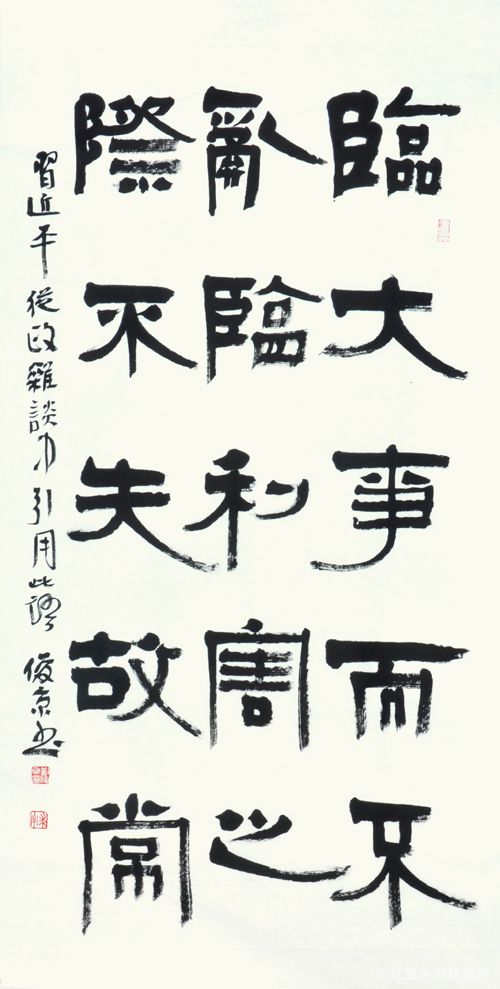 臨大事而不
亂臨利害之
際不失故常
習近平從政雜談中引用此語 俊京書